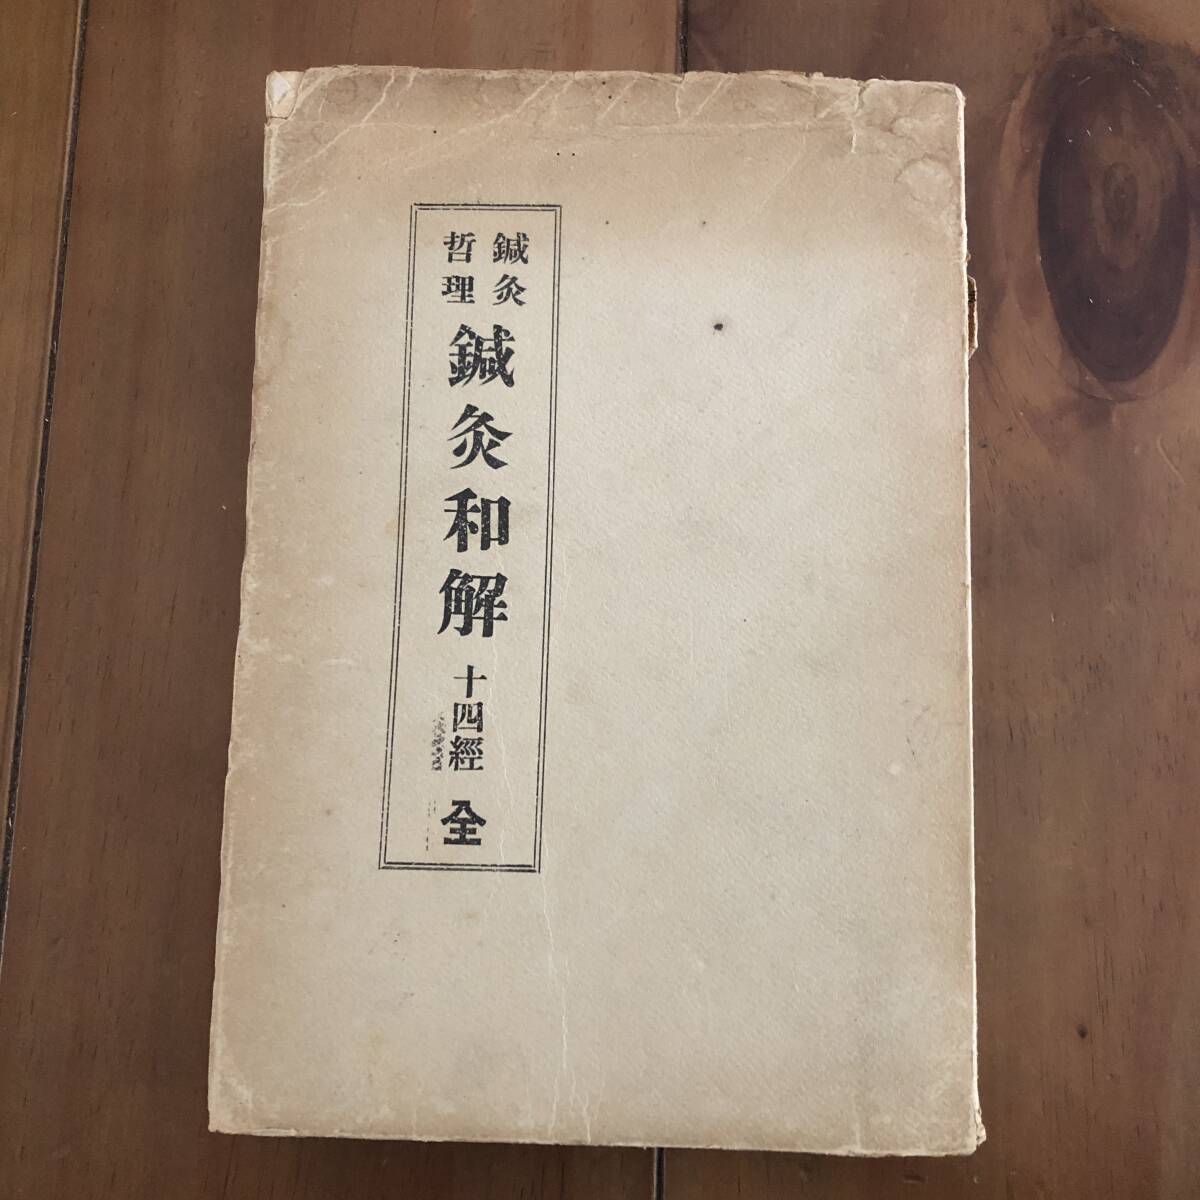 鍼灸
哲理
鍼灸和解
十四經
全